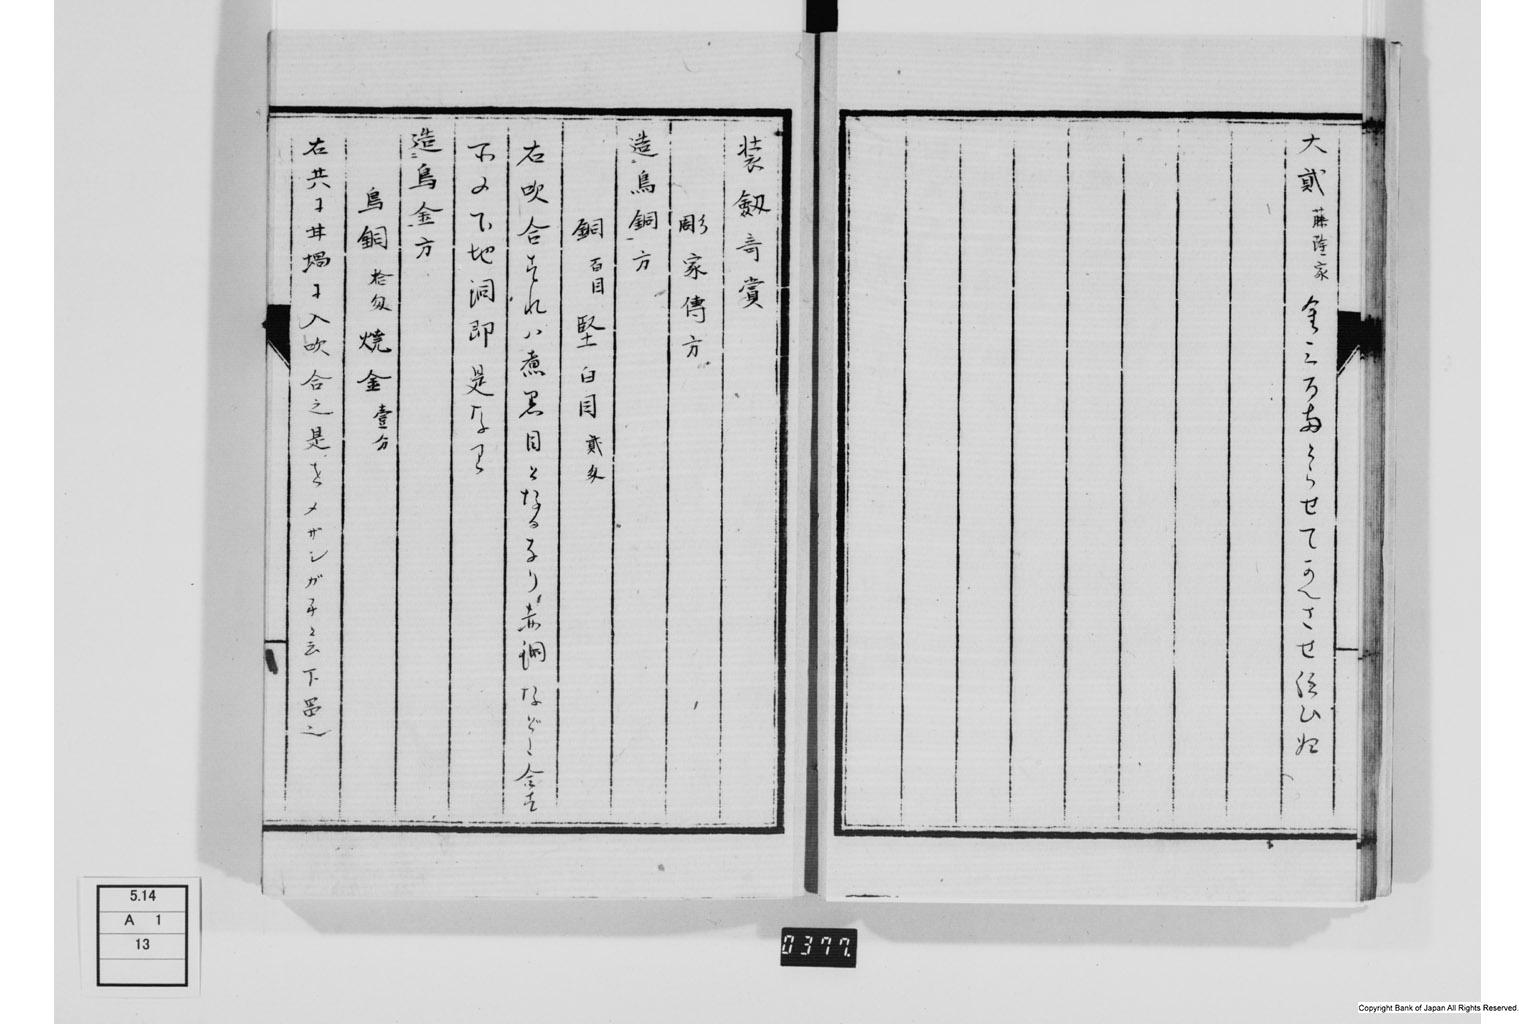 大貳 藤隆家 金三百両とらせてのへさせ給ひぬ
装劔奇賞
彫家傳方
造烏銅方
銅 百目 堅白目 貳匁
右吹合されハ煮黒目となるなり赤銅などゝ合さ
不の下地洞即是なり
造烏金方
烏銅 拾匁 焼金 壹分
右共ニ坩堝ニ入吹合之是をメザシガネと云下品之
5.14
A 1
13
0377.
Copyright Bank of Japan All Rights Reserved.